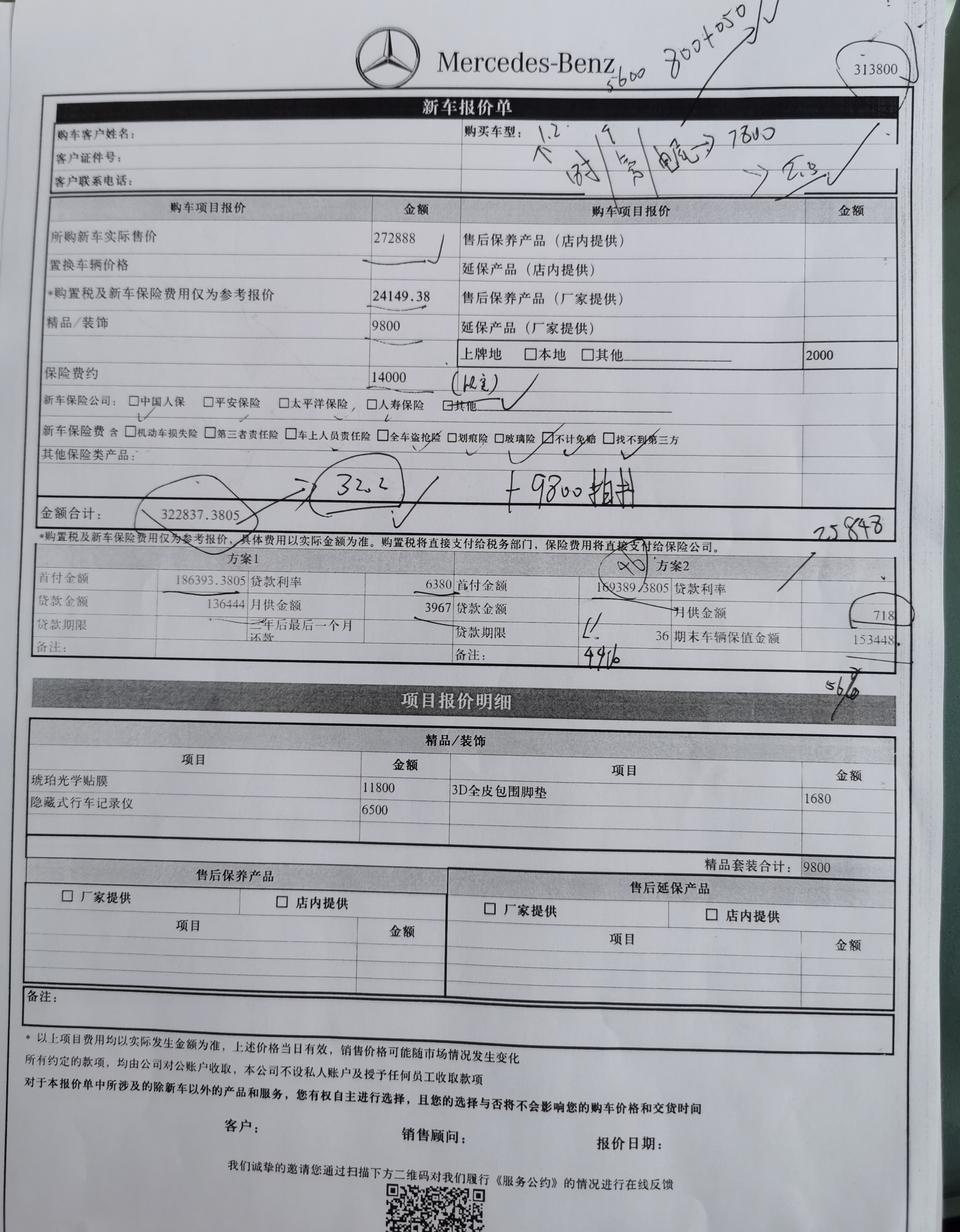 800+050
5600
313800
Mercedes-Benz
新车报价单
购车客户姓名：
购买车型： 1.2
客户证件号：
7800
客户联系电话：
购车项目报价 金额 购车项目报价 金额
所购新车实际售价 272888 售后保养产品（店内提供）
置换车辆价格 延保产品（店内提供）
*购置税及新车保险费用仅为参考报价 24149.38 售后保养产品（厂家提供）
精品/装饰 9800 延保产品（厂家提供）
上牌地 □本地 □其他 2000
保险费约 14000
新车保险公司： □中国人保 □平安保险 □太平洋保险， □人寿保险 □其他
新车保险费 含 □机动车损失险 □第三者责任险 □车上人员责任险 □全车盗抢险 □划痕险 □玻璃险 □不计免赔 □找不到第三方
其他保险类产品：
32.2 +9800
金额合计： 322837.3805
25848
*购置税及新车保险费用仅为参考报价、具体费用以实际金额为准。购置税将直接支付给税务部门，保险费用将直接支付给保险公司。
方案1 方案2
首付金额 186393.3805 贷款利率 6380 首付金额 169389.3805 贷款利率
贷款金额 136444 月供金额 3967 贷款金额 月供金额 718
贷款期限 三年后最后一个月还款 贷款期限 36 期末车辆保值金额 153448.
备注： 备注： 4416
项目报价明细
精品/装饰
项目 金额 项目 金额
琥珀光学贴膜 11800 3D全皮包围脚垫 1680
隐藏式行车记录仪 6500
精品套装合计： 9800
售后保养产品 售后延保产品
□ 厂家提供 □ 店内提供 □ 厂家提供 □ 店内提供
项目 金额 项目 金额
备注：
* 以上项目费用均以实际发生金额为准，上述价格当日有效，销售价格可能随市场情况发生变化
所有约定的款项，均由公司对公账户收取，本公司不设私人账户及授予任何员工收取款项
对于本报价单中所涉及的除新车以外的产品和服务，您有权自主进行选择，且您的选择与否将不会影响您的购车价格和交货时间
客户： 销售顾问： 报价日期：
我们诚挚的邀请您通过扫描下方二维码对我们履行《服务公约》的情况进行在线反馈